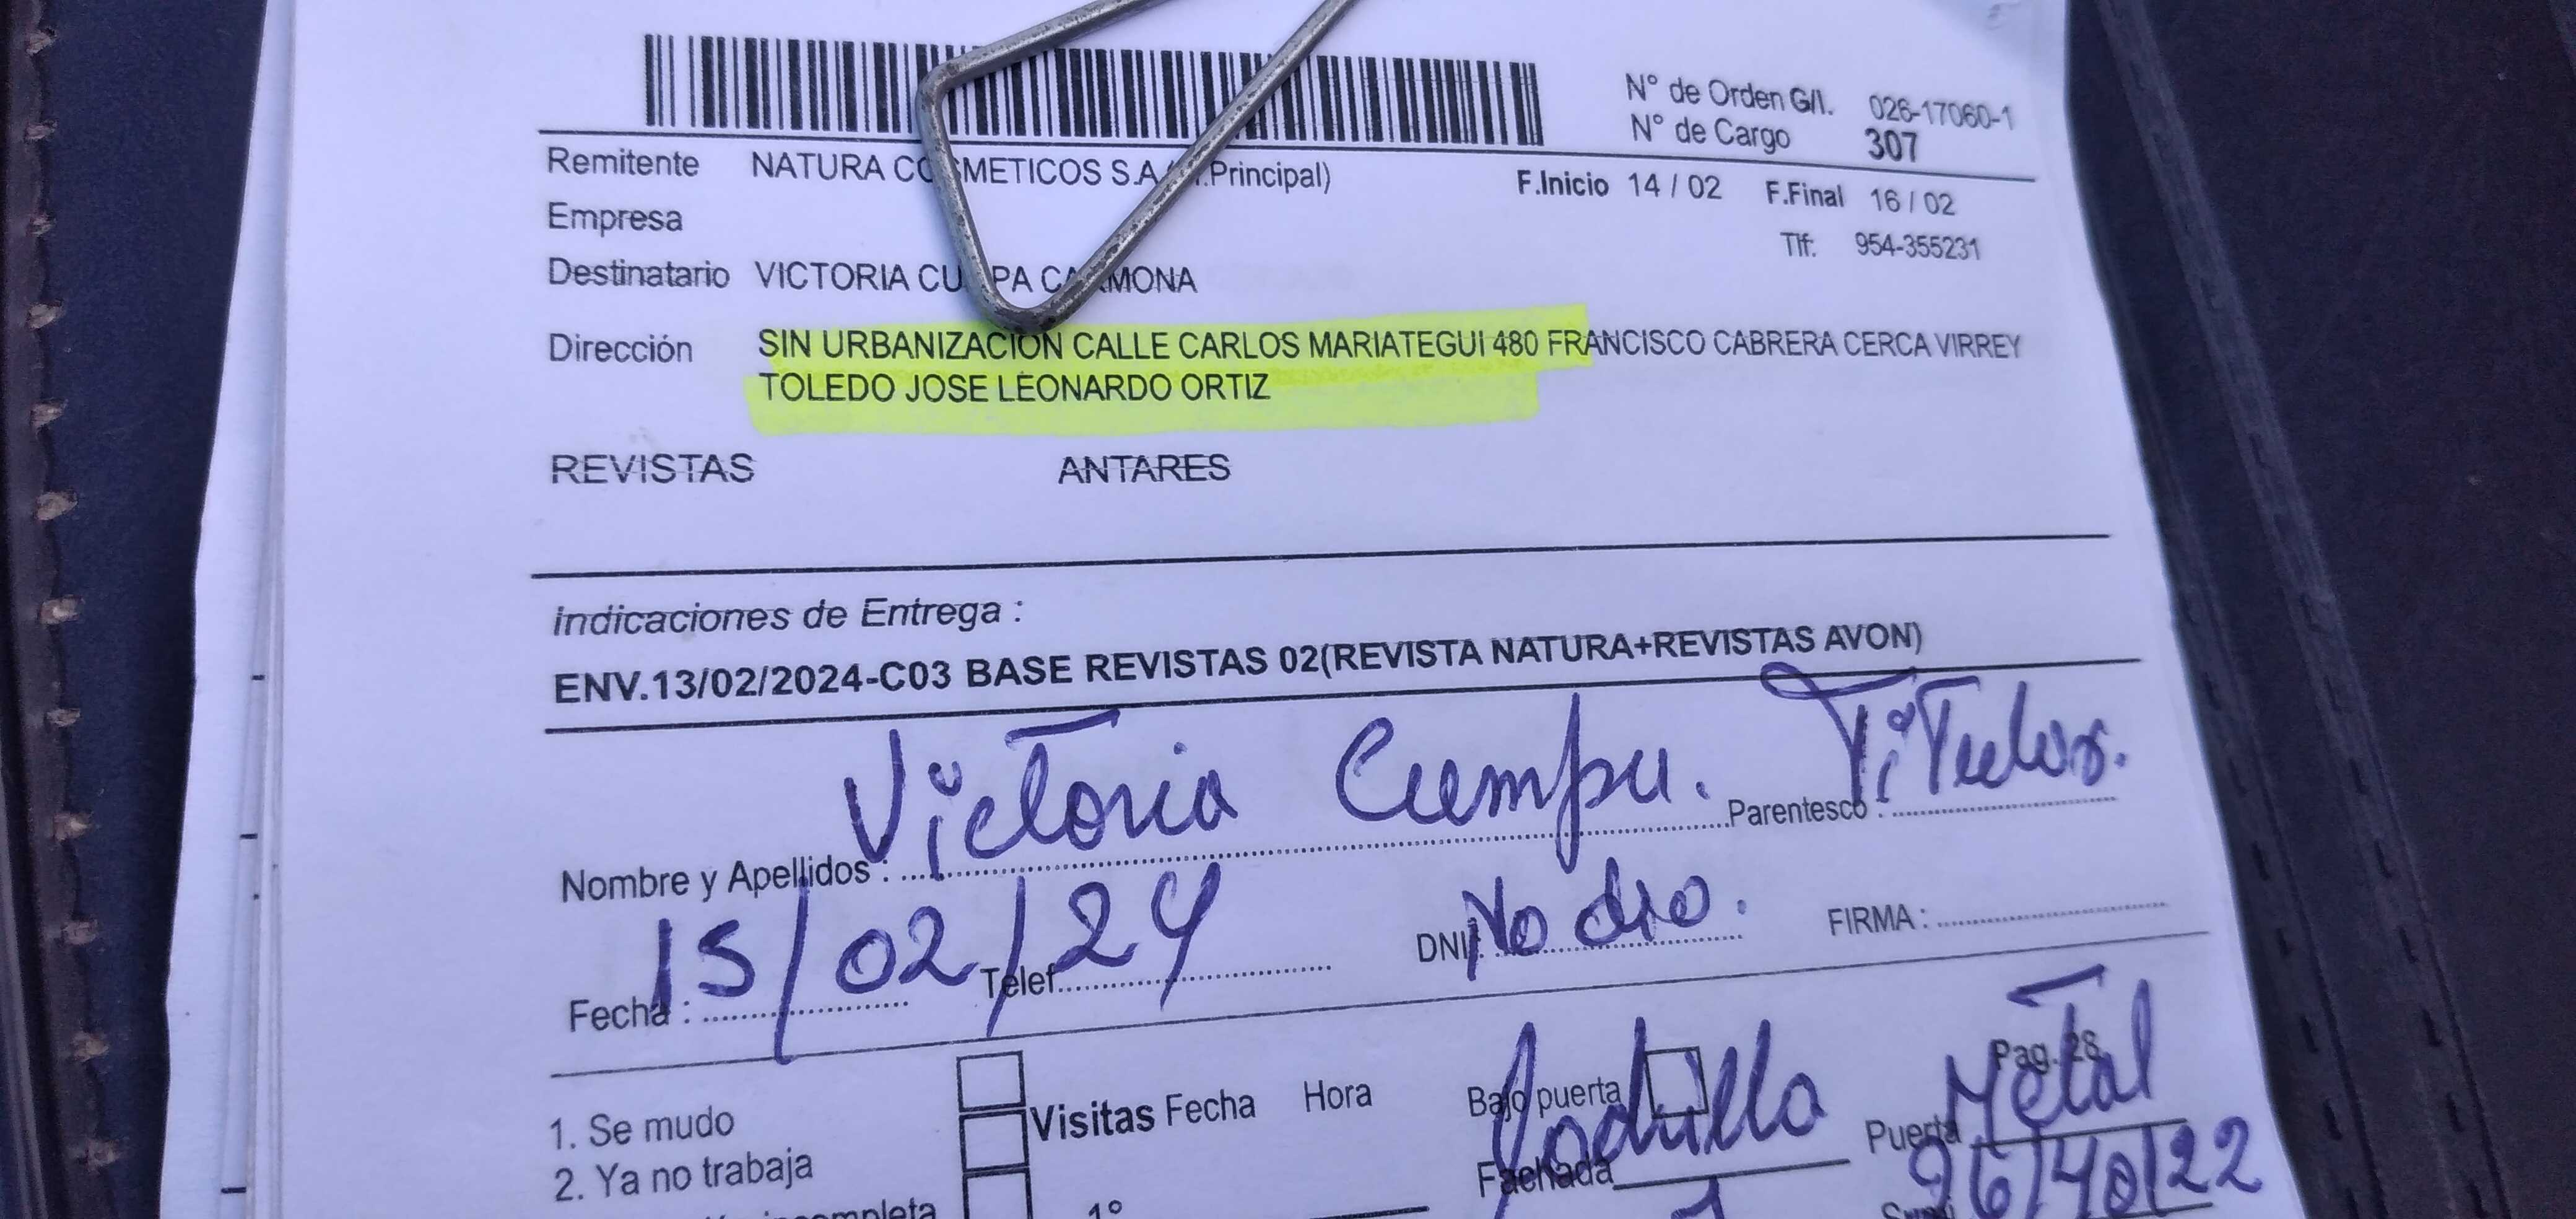 N° de Orden G/I. 026-17060-1
N° de Cargo 307
Remitente NATURA COSMETICOS S.A Principal)
F.Inicio 14 / 02 F.Final 16 / 02
Empresa
Tlf: 954-355231
Destinatario VICTORIA CUMPA CARMONA
Dirección SIN URBANIZACION CALLE CARLOS MARIATEGUI 480 FRANCISCO CABRERA CERCA VIRREY
TOLEDO JOSE LEONARDO ORTIZ
REVISTAS ANTARES
Indicaciones de Entrega :
ENV.13/02/2024-C03 BASE REVISTAS 02(REVISTA NATURA+REVISTAS AVON)
Nombre y Apellidos : Victoria Cumpa. Parentesco : Titular.
Fecha : 15/02/24 Telef. DNI: No dio. FIRMA :
Pag. 28
1. Se mudo Visitas Fecha Hora Bajo puerta
2. Ya no trabaja Fachada Ladrillo Puerta Metal
1° 96/40/22